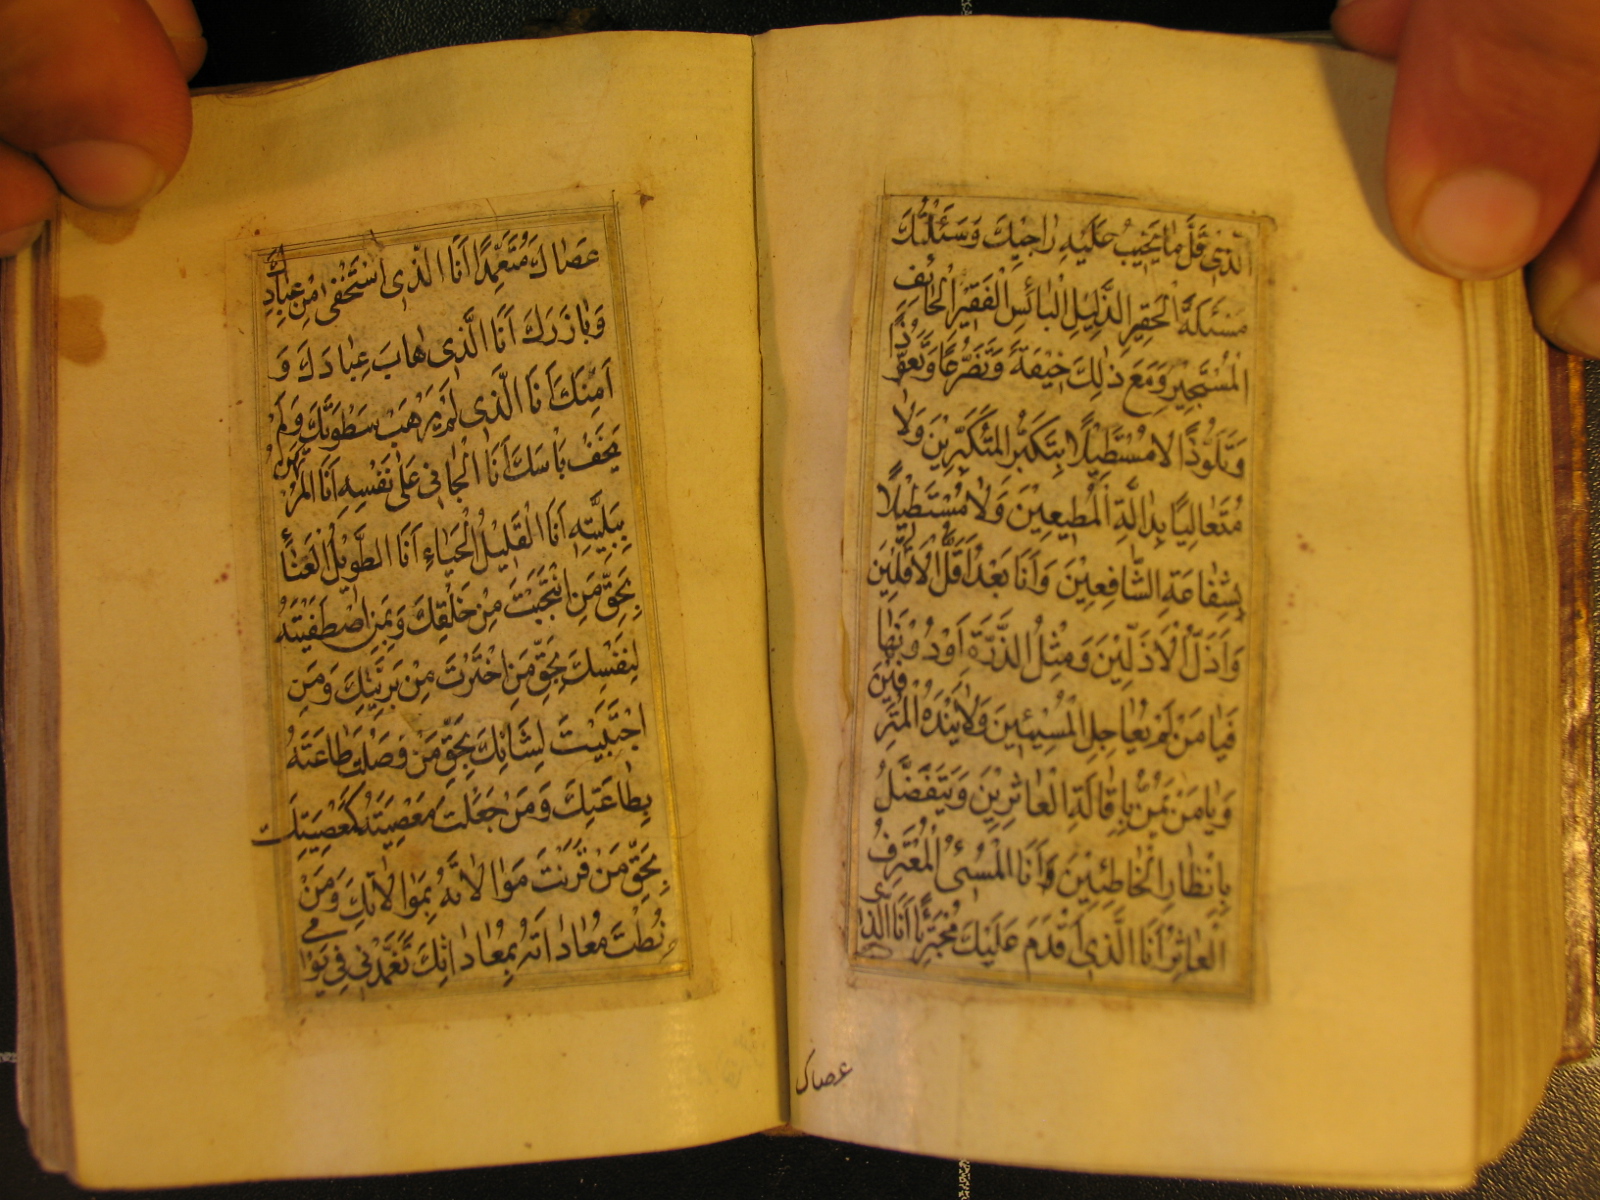 الَّذِي قَلَّ مَا يَخِيبُ عَلَيْهِ رَاجِيكَ وَسَئَلْتُكَ
مَسْئَلَةَ الْحَقِيرِ الذَّلِيلِ الْبَائِسِ الْفَقِيرِ الْخَائِفِ
الْمُسْتَجِيرِ وَمَعَ ذٰلِكَ خِيفَةً وَتَضَرُّعًا وَتَعَوُّذًا
وَتَلَوُّذًا لَا مُسْتَطِيلًا بِتَكَبُّرِ الْمُتَكَبِّرِينَ وَلَا
مُتَعَالِيًا بِدَالَّةِ الْمُطِيعِينَ وَلَا مُسْتَطِيلًا
بِشَفَاعَةِ الشَّافِعِينَ وَأَنَا بَعْدُ أَقَلُّ الْأَقَلِّينَ
وَأَذَلُّ الْأَذَلِّينَ وَمِثْلُ الذَّرَّةِ أَوْ دُونَهَا
فَيَا مَنْ لَمْ يُعَاجِلِ الْمُسِيئِينَ وَلَا يَنْدَهُ الْمُتْرَفِينَ
وَيَا مَنْ يَمُنُّ بِإِقَالَةِ الْعَاثِرِينَ وَيَتَفَضَّلُ
بِإِنْظَارِ الْخَاطِئِينَ وَأَنَا الْمُسِيئُ الْمُعْتَرِفُ
الْعَاثِرُ أَنَا الَّذِي أَقْدَمَ عَلَيْكَ مُجْتَرِئًا أَنَا الَّذِي
عصاك
عَصَاكَ مُتَعَمِّدًا أَنَا الَّذِي اسْتَخْفَى مِنْ عِبَادِكَ
وَبَارَزَكَ أَنَا الَّذِي هَابَ عِبَادَكَ وَ
أَمِنَكَ أَنَا الَّذِي لَمْ يَرْهَبْ سَطْوَتَكَ وَلَمْ
يَخَفْ بَأْسَكَ أَنَا الْجَانِي عَلَى نَفْسِهِ أَنَا الْمُرْتَهَنُ
بِبَلِيَّتِهِ أَنَا الْقَلِيلُ الْحَيَاءِ أَنَا الطَّوِيلُ الْعَنَاءِ
بِحَقِّ مَنِ انْتَجَبْتَ مِنْ خَلْقِكَ وَبِمَنِ اصْطَفَيْتَهُ
لِنَفْسِكَ بِحَقِّ مَنِ اخْتَرْتَ مِنْ بَرِيَّتِكَ وَمَنِ
اجْتَبَيْتَ لِشَأْنِكَ بِحَقِّ مَنْ وَصَلْتَ طَاعَتَهُ
بِطَاعَتِكَ وَمَنْ جَعَلْتَ مَعْصِيَتَهُ كَمَعْصِيَتِكَ
بِحَقِّ مَنْ قَرَنْتَ مُوَالَاتَهُ بِمُوَالَاتِكَ وَمَنْ
نُطْتَ مُعَادَاتَهُ بِمُعَادَاتِكَ تَغَمَّدْنِي فِي يَوْمِي